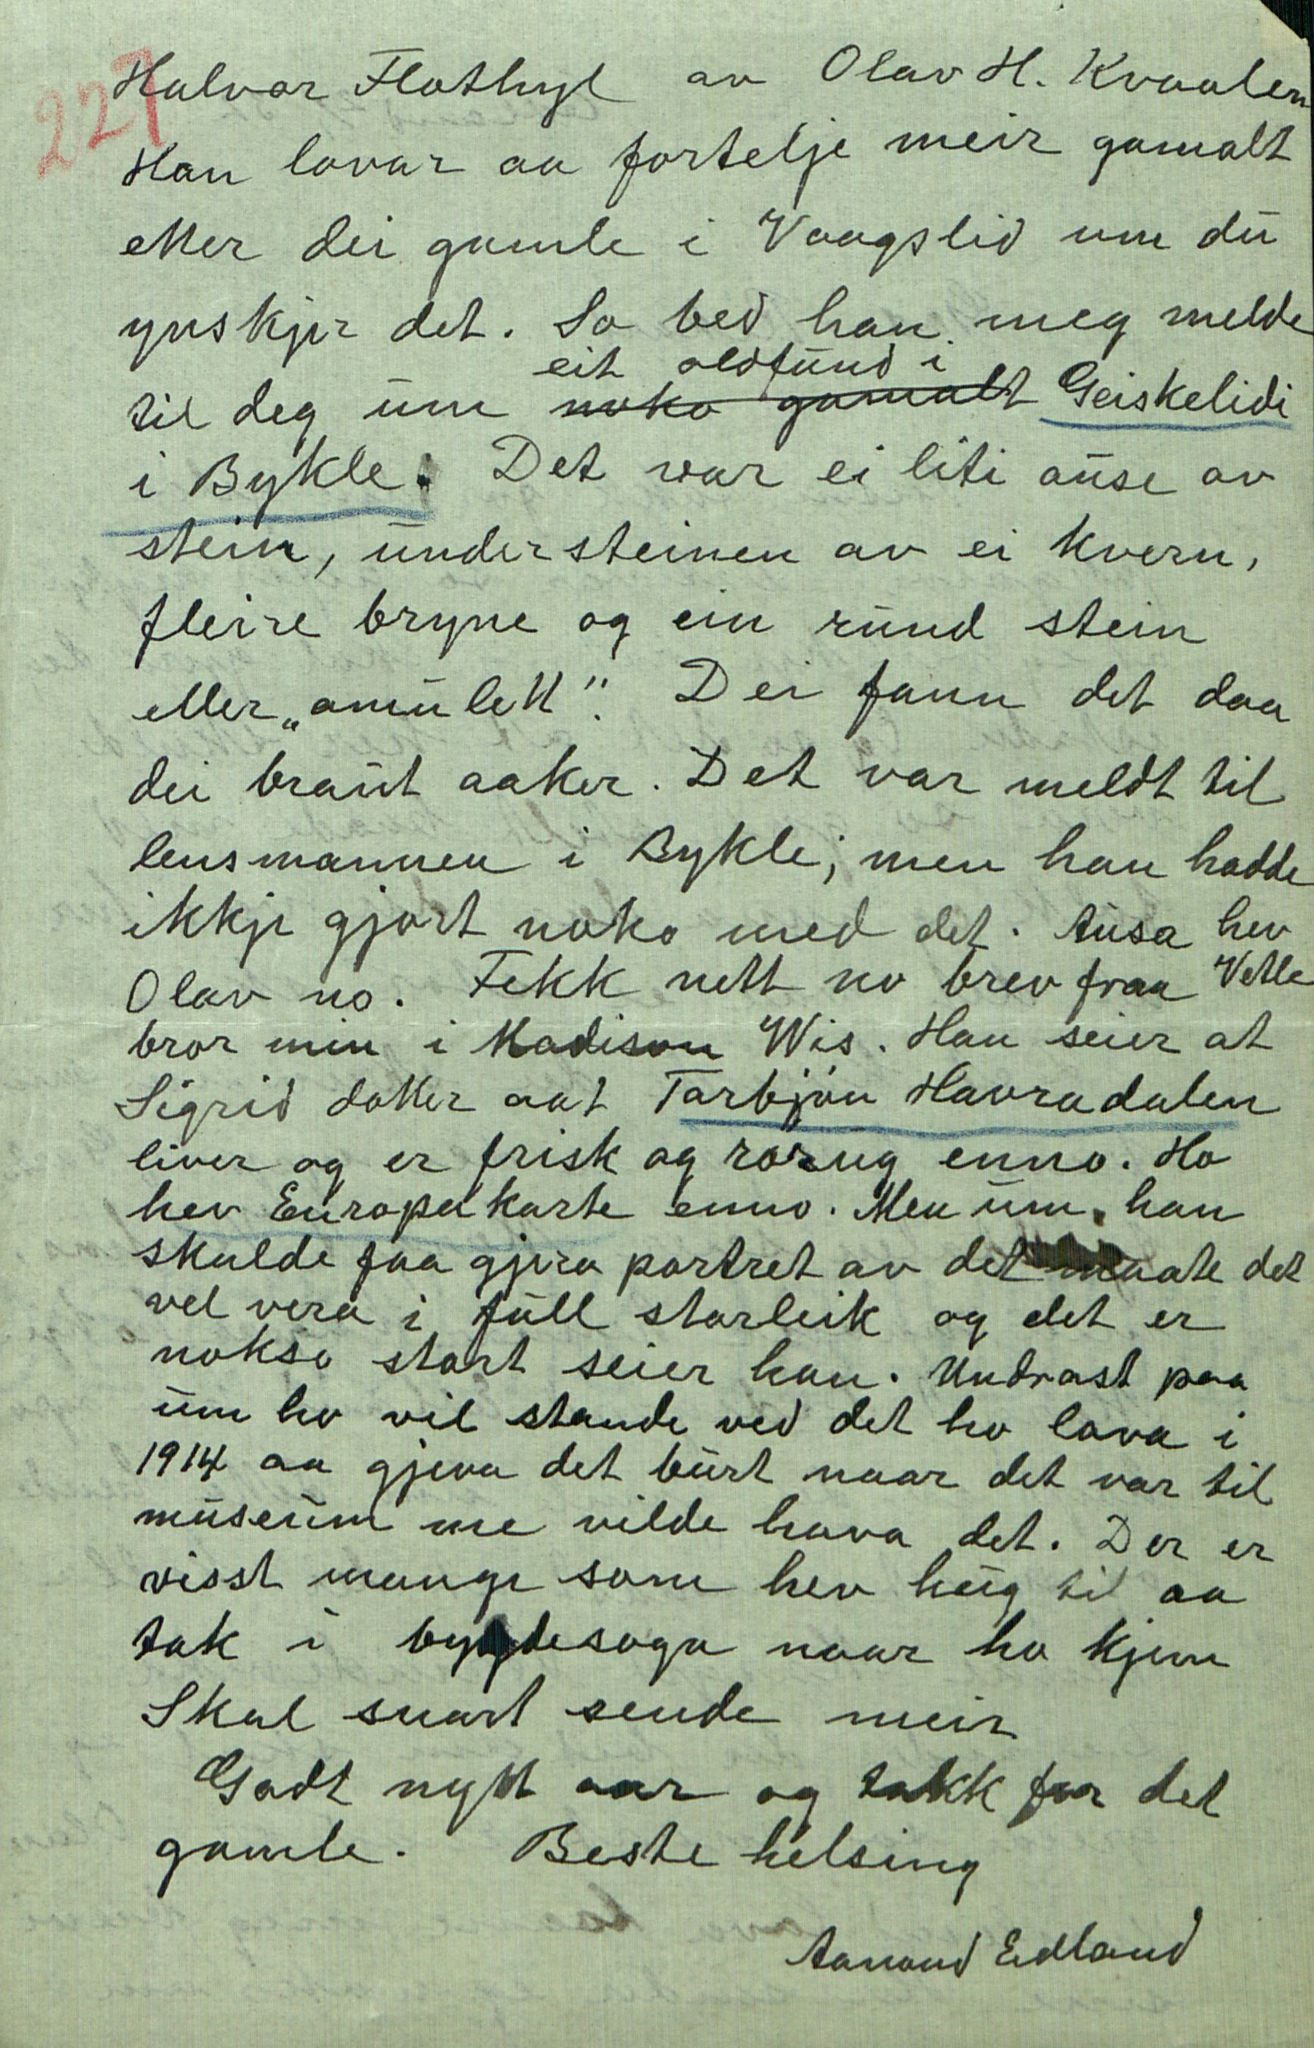 227
Halvor Flothyl av Olav H. Kvaalen
Han lovar aa fortelje meir gamalt
etter dei gamle i Vaagslid um du
ynskjer det. So bed han meg melde
eit oldfund i
til deg um noko gamalt Geiskelidi
i Bykle. Det var ei liti ause av
stein, understeinen av ei kvern,
fleire bryne og ein rund stein
eller „amulett". Dei fann det daa
dei braut aaker. Det var meldt til
lensmannen i Bykle; men han hadde
ikkje gjort noko med det. Ausa hev
Olav no. Fekk nett no brev fraa Vetle
bror min i Madison Wis. Han seier at
Sigrid dotter aat Tarbjøn Havradalen
liver og er frisk og rorug enno. Ho
hev Europakarte enno. Men um han
skulde faa gjera portret av det maate det
vel vera i full storleik og det er
nokso stort seier han. Undrast paa
um ho vil stande ved det ho lova i
1914 aa gjeva det burt naar det var til
museum me vilde hava det. Der er
visst mange som hev hug til aa
tak i bygdesoga naar ho kjem
Skal snart sende meir
Godt nytt aar og takk for det
gamle. Beste helsing
Aanund Edland